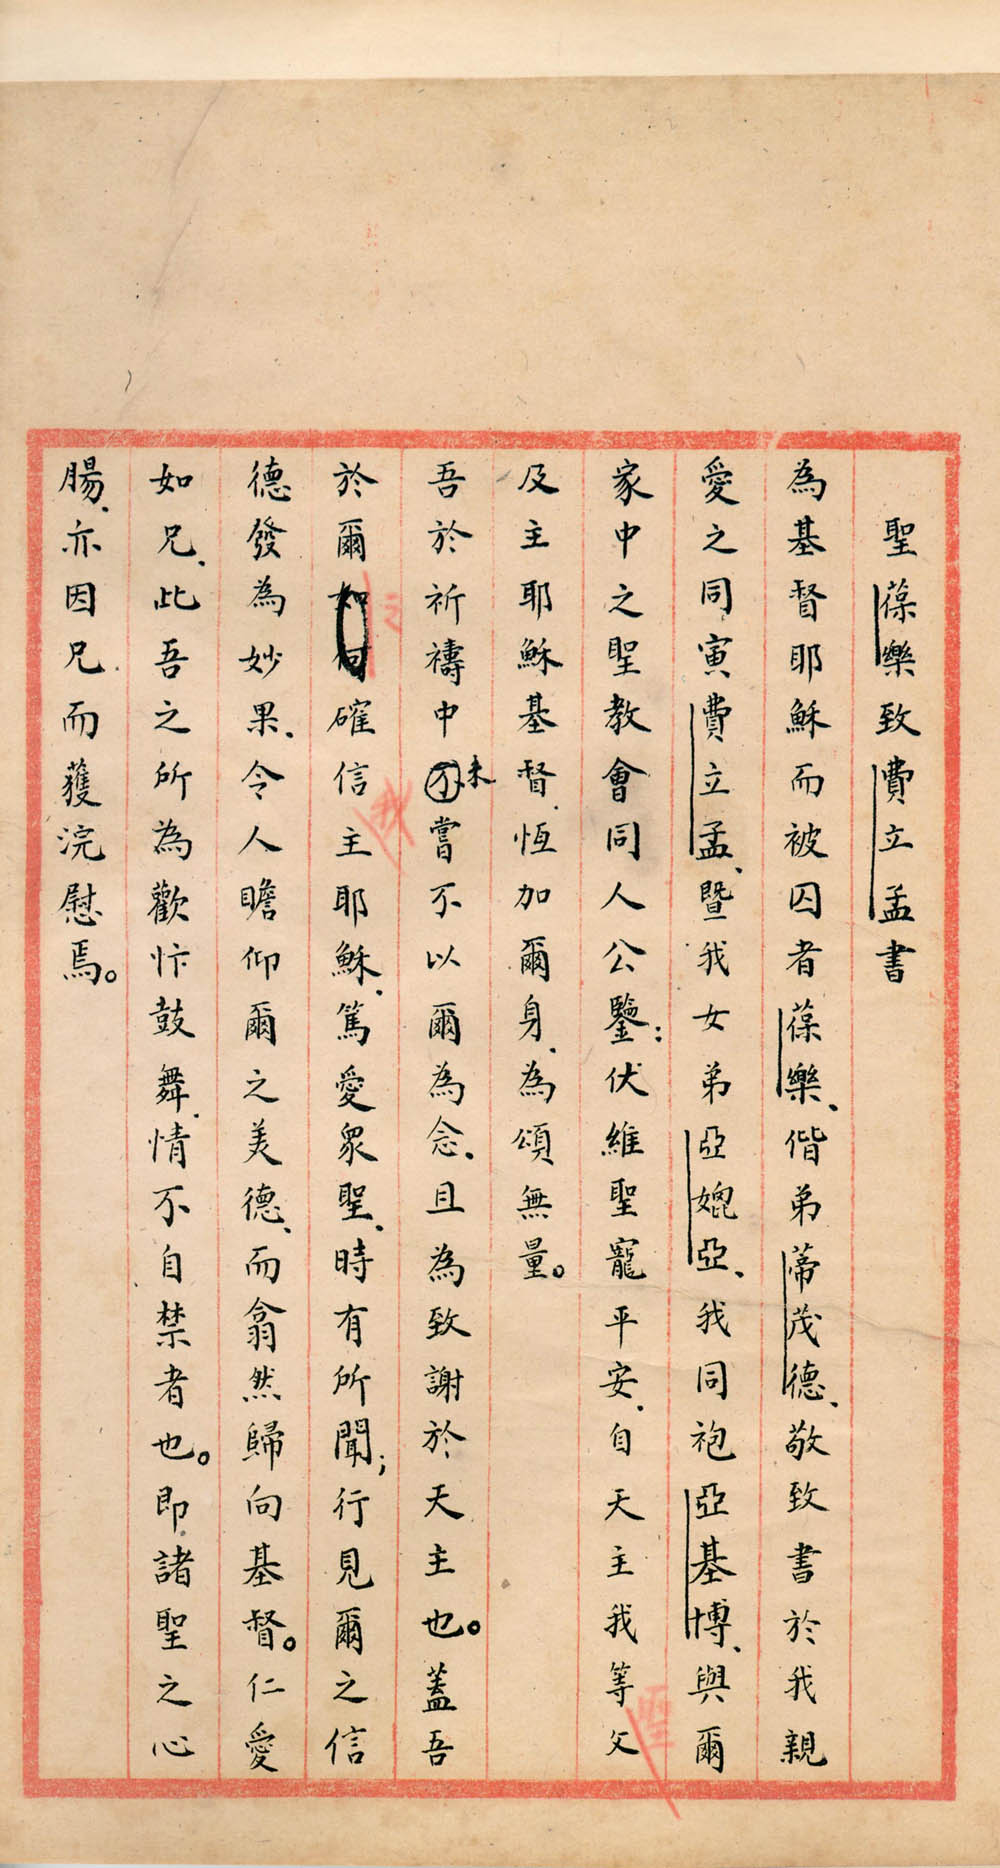 聖葆樂致費立孟書
為基督耶穌而被囚者葆樂、偕弟蒂茂德、敬致書於我親
愛之同寅費立孟、暨我女弟亞媲亞、我同袍亞基博、與爾
家中之聖教會同人公鑒：伏維聖寵平安、自天主我等父
及主耶穌基督、恆加爾身、為頌無量。
吾於祈禱中不未嘗不以爾為念、且為致謝於天主也。蓋吾
於爾如何之確信主耶穌、篤愛眾聖、時有所聞；行見爾之信
德發為妙果、令人瞻仰爾之美德、而翕然歸向基督。仁愛
如兄、此吾之所為歡忭鼓舞、情不自禁者也。即諸聖之心
腸、亦因兄而獲浣慰焉。